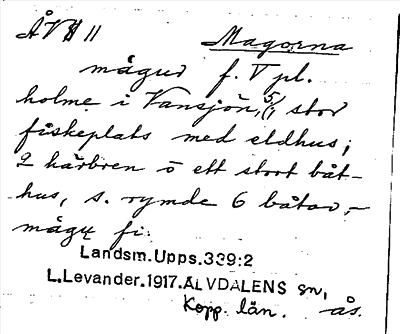 ÅV 11 Magorna
mågur f. V pl.
holme i Vansjön, 5/1 stor
fiskeplats med eldhus;
2 härbren o ett stort båt-
hus, s. rymde 6 båtar,-
mågų f:
Landsm.Upps.339:2
L.Levander.1917.ÄLVDALENS sn,
Kopp. län. ås.